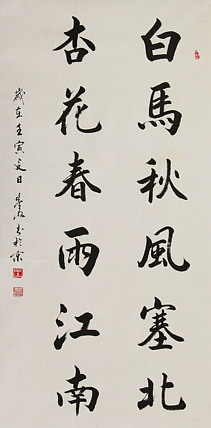 白馬秋風塞北
杏花春雨江南
歲在壬寅文日
书於京